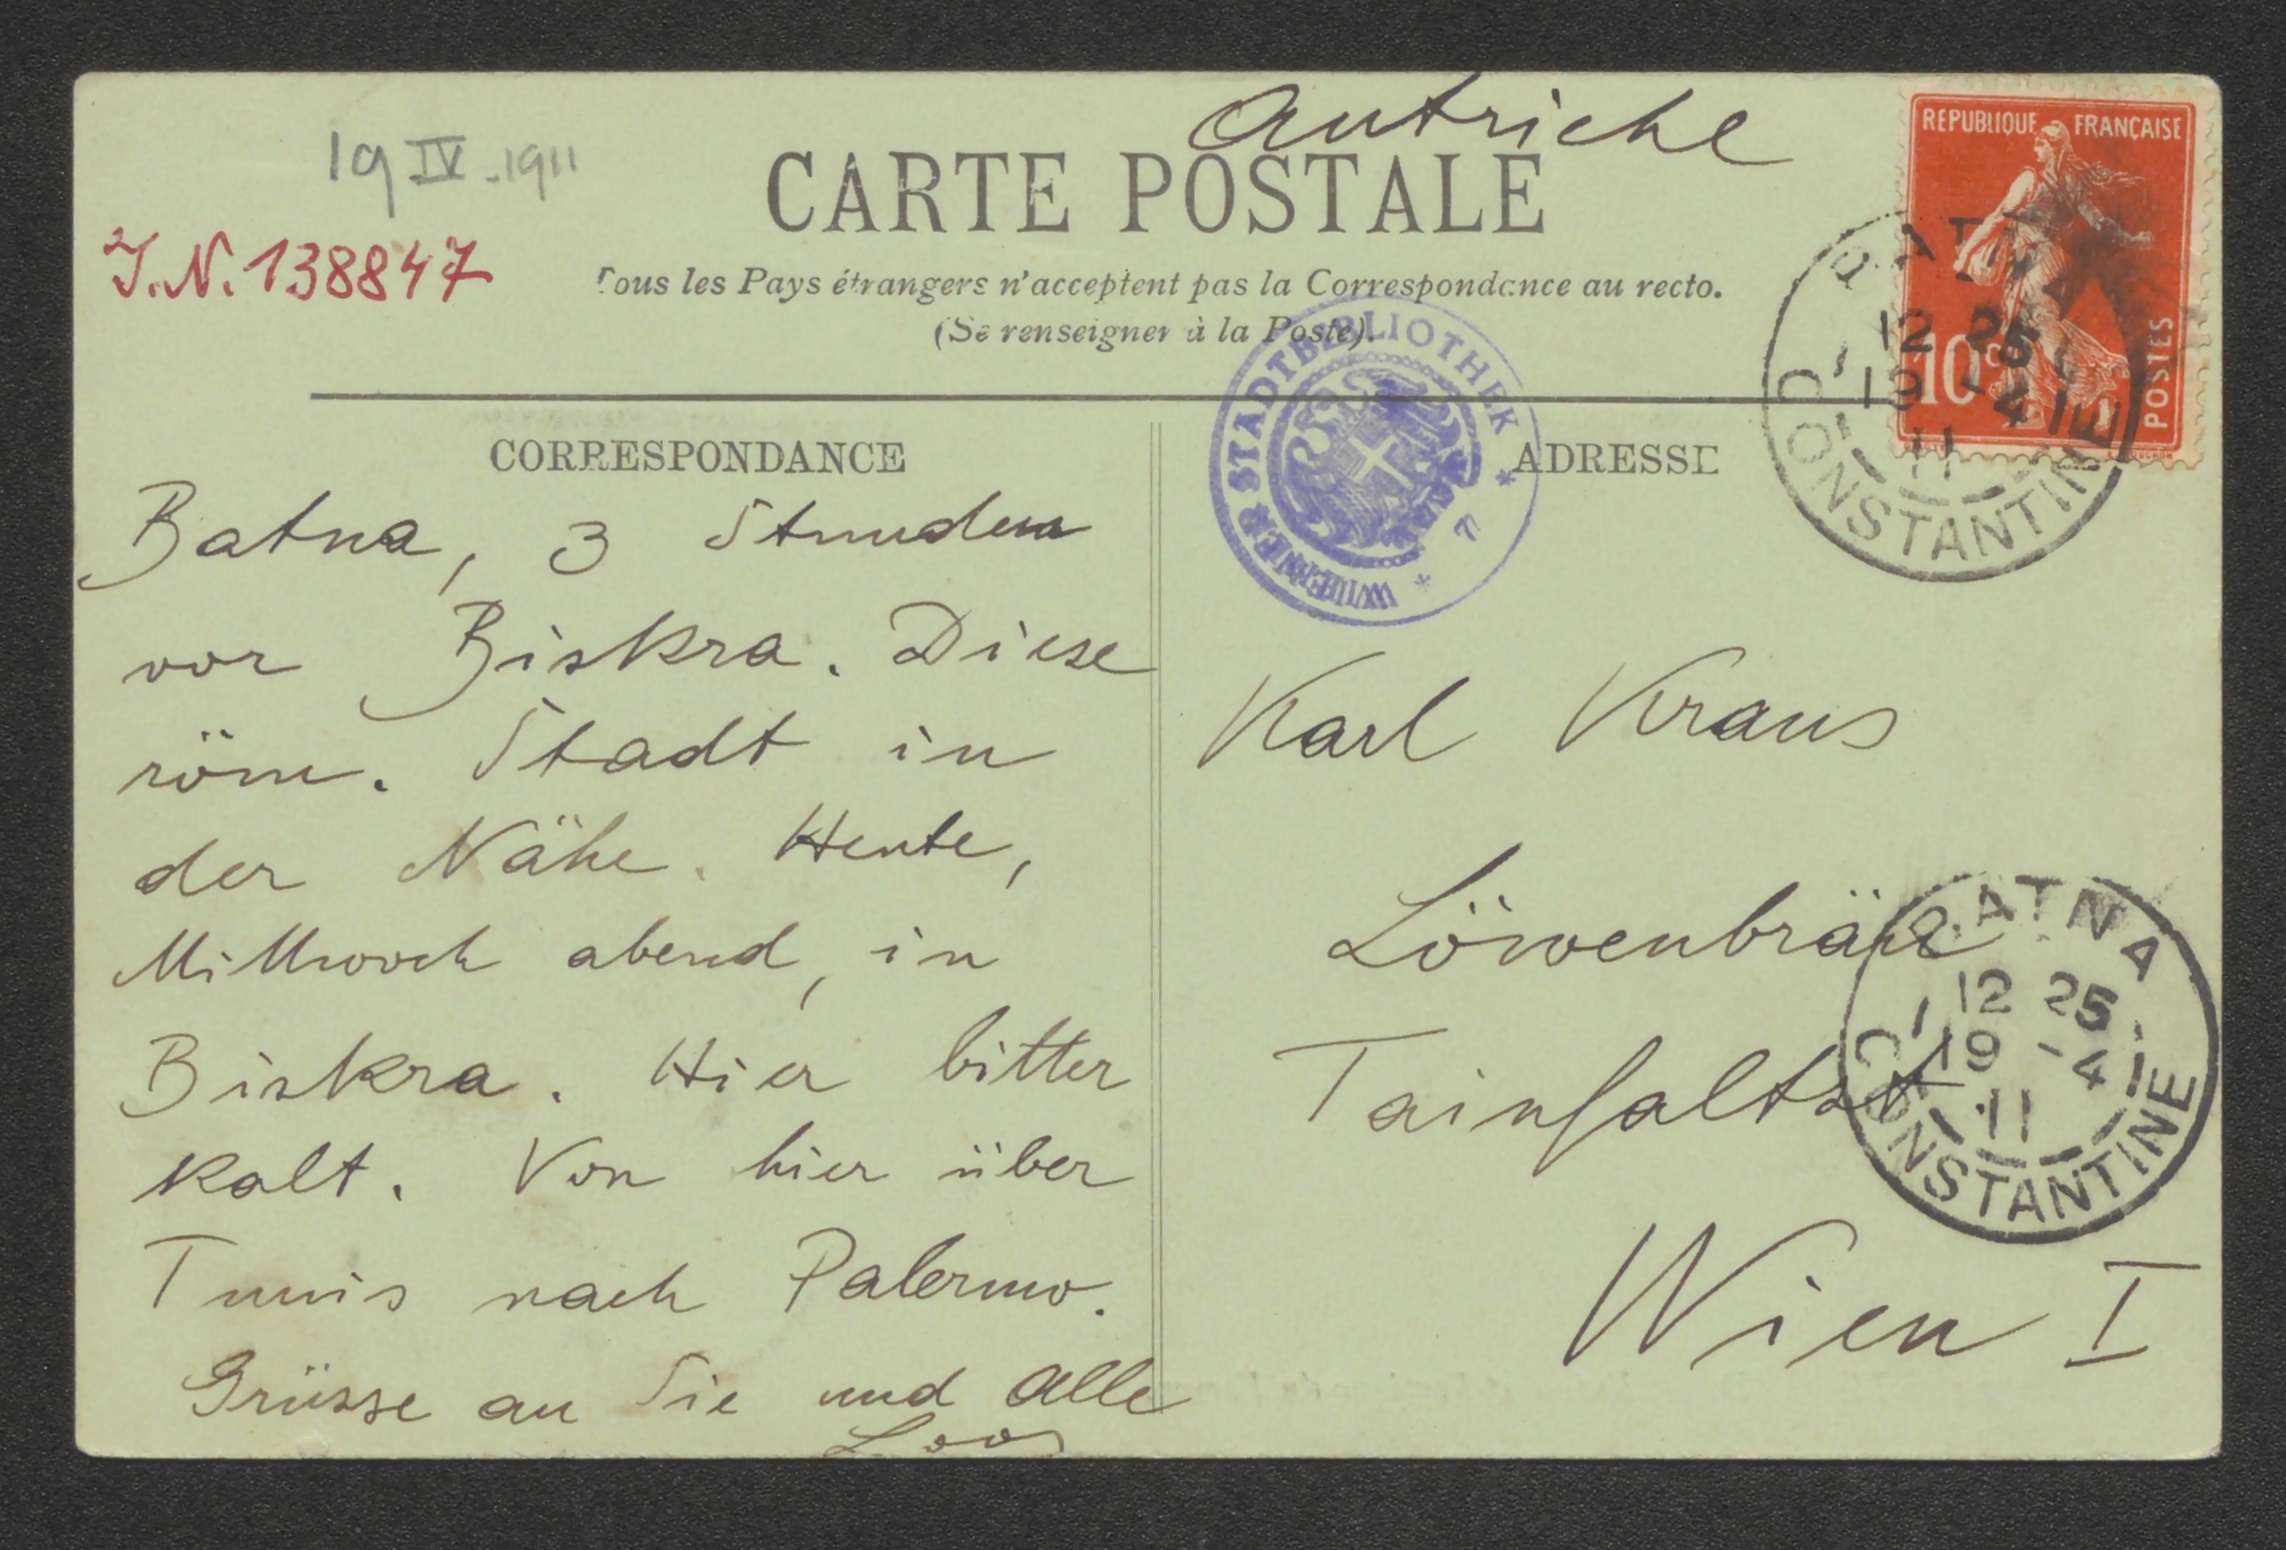 Autriche
19 IV. 1911
CARTE POSTALE
J.N. 138847
Tous les Pays étrangers n'acceptent pas la Correspondance au recto.
(Se renseigner à la Poste).
REPUBLIQUE FRANÇAISE
10c
POSTES
BATNA
12 25
19 -4
11
CONSTANTINE
WIENER STADTBIBLIOTHEK
CORRESPONDANCE
Batna, 3 Stunden
vor Biskra. Diese
röm. Stadt in
der Nähe. Heute,
Mittwoch abend, in
Biskra. Hier bitter
kalt. Von hier über
Tunis nach Palermo.
Grüsse an Sie und Alle
Loos
ADRESSE
Karl Kraus
Löwenbräu
Tainfaltst
Wien I
BATNA
12 25
19 -4
11
CONSTANTINE